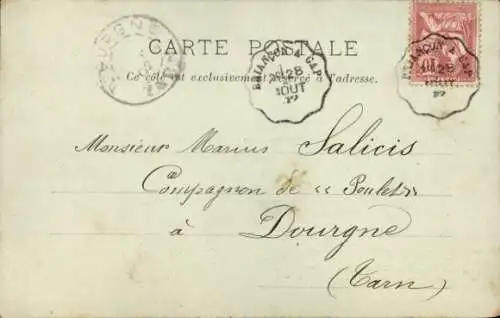 DOURGNE
CARTE POSTALE
Ce côté est exclusivement réservé à l'adresse.
BRIANÇON A GAP
28
AOUT
BRIANÇON A GAP
28
AOUT
Monsieur Marius Salicis
Compagnon de « Poulet »
à Dourgne
(Tarn)